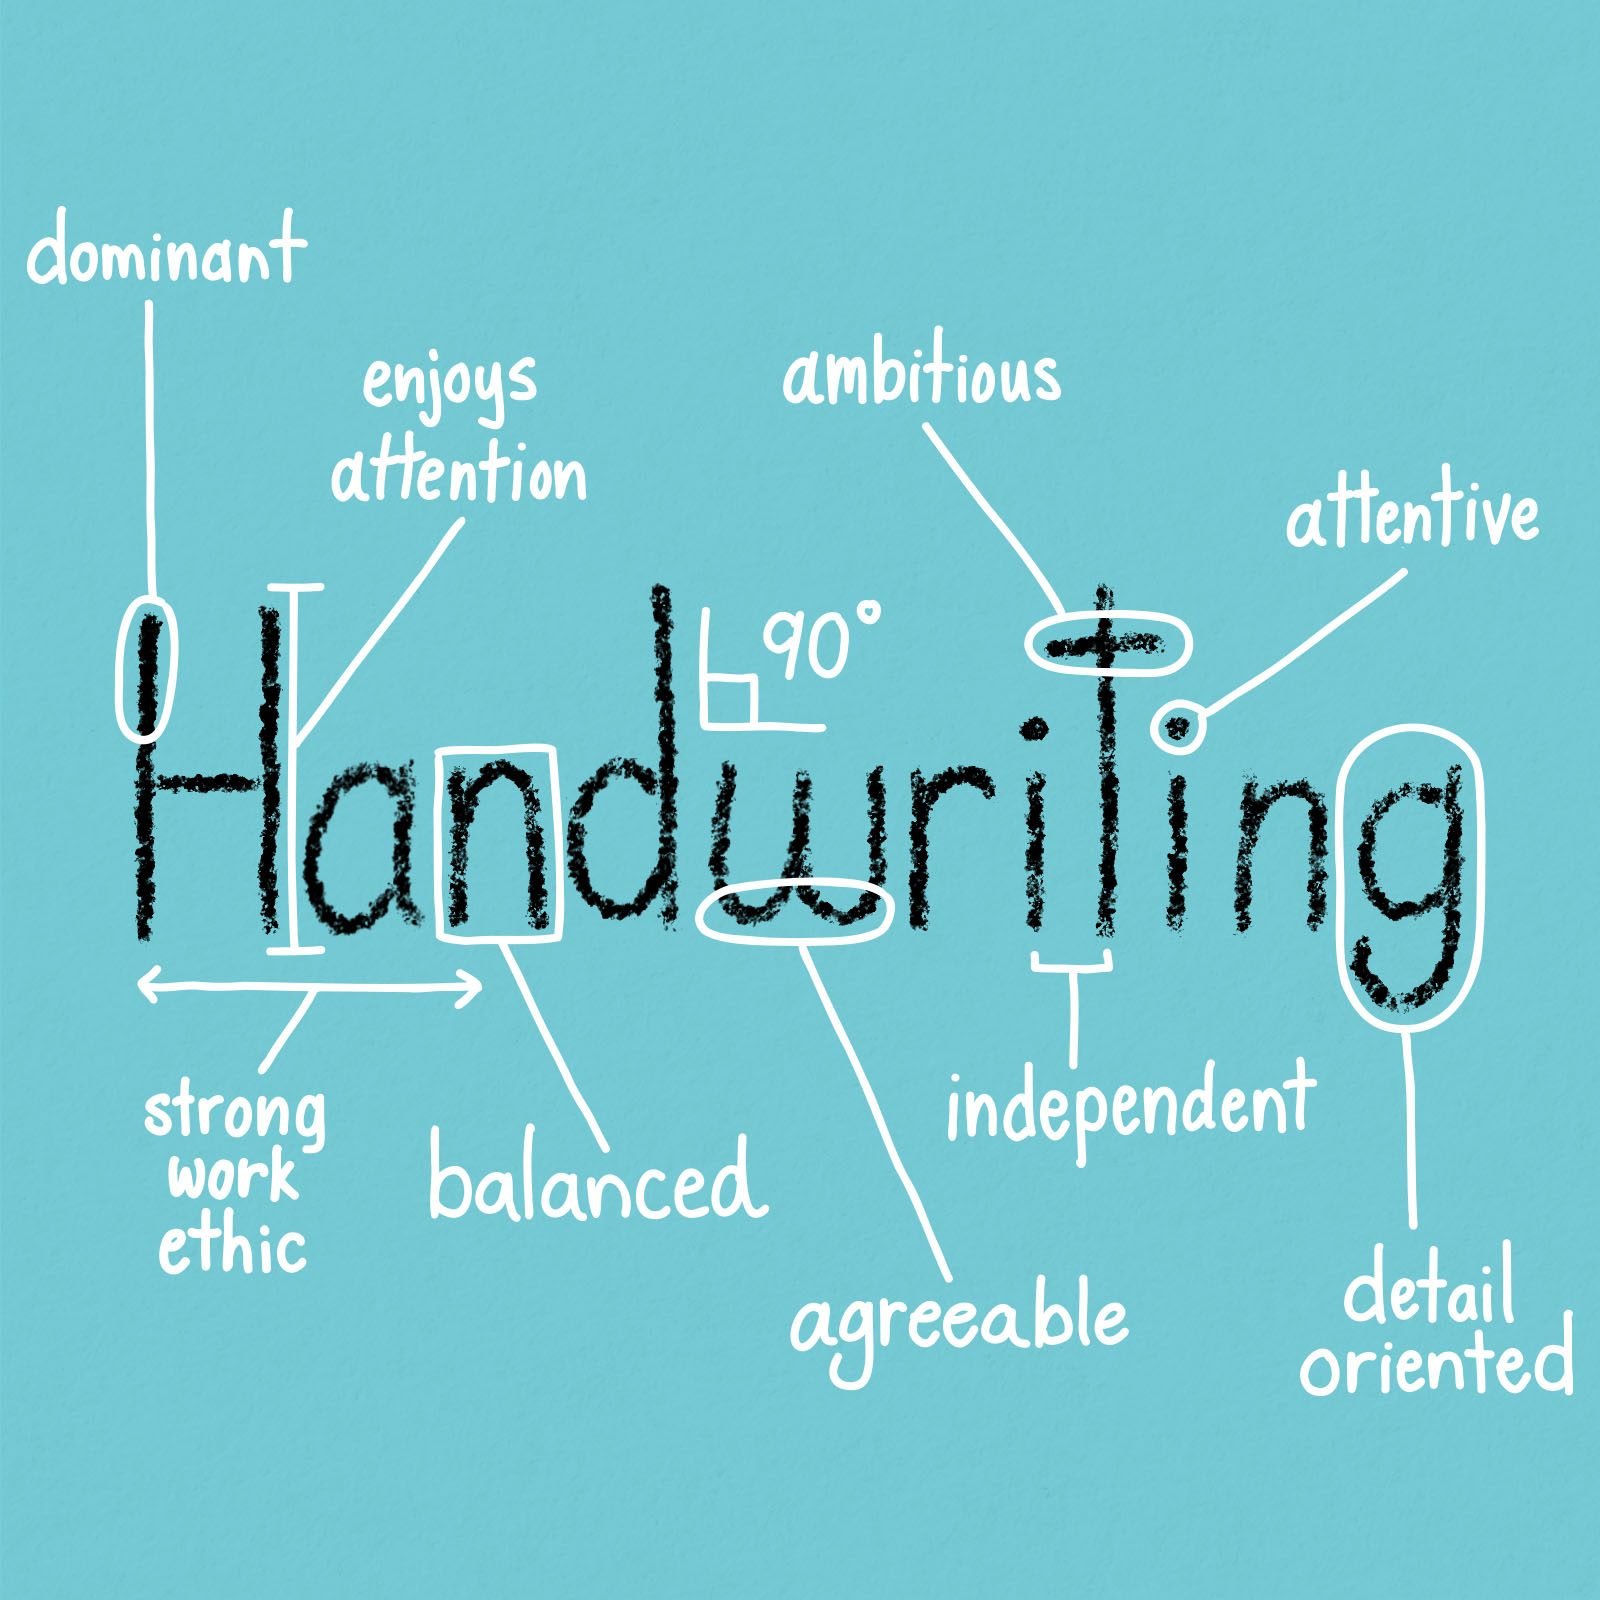 dominant
enjoys
attention
ambitious
attentive
90°
Handwriting
strong
work
ethic
balanced
agreeable
independent
detail
oriented